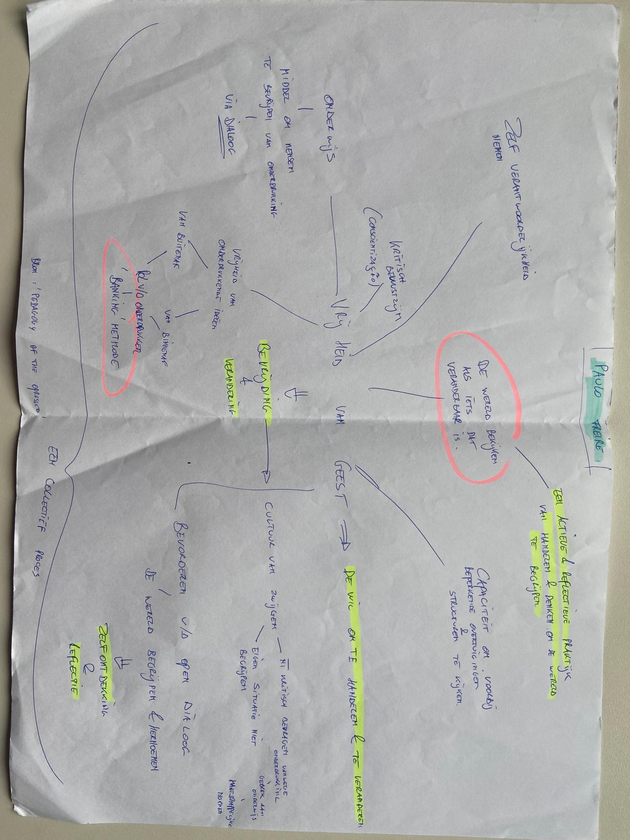 PAULO FREIRE
ZELF VERANTWOORDELIJKHEID
NEMEN
DE WERELD BEKIJKEN
ALS IETS DAT
VERANDERBAAR IS.
EEN ACTIEVE & REFLECTIEVE PRAKTIJK
VAN HANDELEN & DENKEN OM DE WERELD
TE BEGRIJPEN
CAPACITEIT OM VOORBIJ
BEPERKENDE OVERTUIGINGEN
&
STRUCTUREN TE KIJKEN
KRITISCH
BEWUSTZIJN
(CONSCIENTIZAÇÃO)
ONDERWIJS
MIDDEL OM MENSEN
TE BEVRIJDEN VAN ONDERDRUKKING
VIA DIALOOG
VRIJHEID VAN GEEST → DE WIL OM TE HANDELEN & TE VERANDEREN
VRIJHEID VAN
ONDERDRUKKENDE
VAN BUITENAF
VAN BINNENAF
'BANKING' METHODE
BEVRIJDING
&
VERANDERING
CULTUUR VAN ZWIJGEN
EIGEN SITUATIE NIET
BEGRIJPEN
GEBREK AAN
ONDERWIJS
MAATSCHAPPELIJKE
NORMEN
BEVORDEREN V/D OPEN DIALOOG
DE WERELD BEGRIJPEN & HERNOEMEN
ZELFONTDEKKING
&
REFLECTIE
EEN COLLECTIEF PROCES
BRON: 'PEDAGOGY OF THE OPPRESSED'